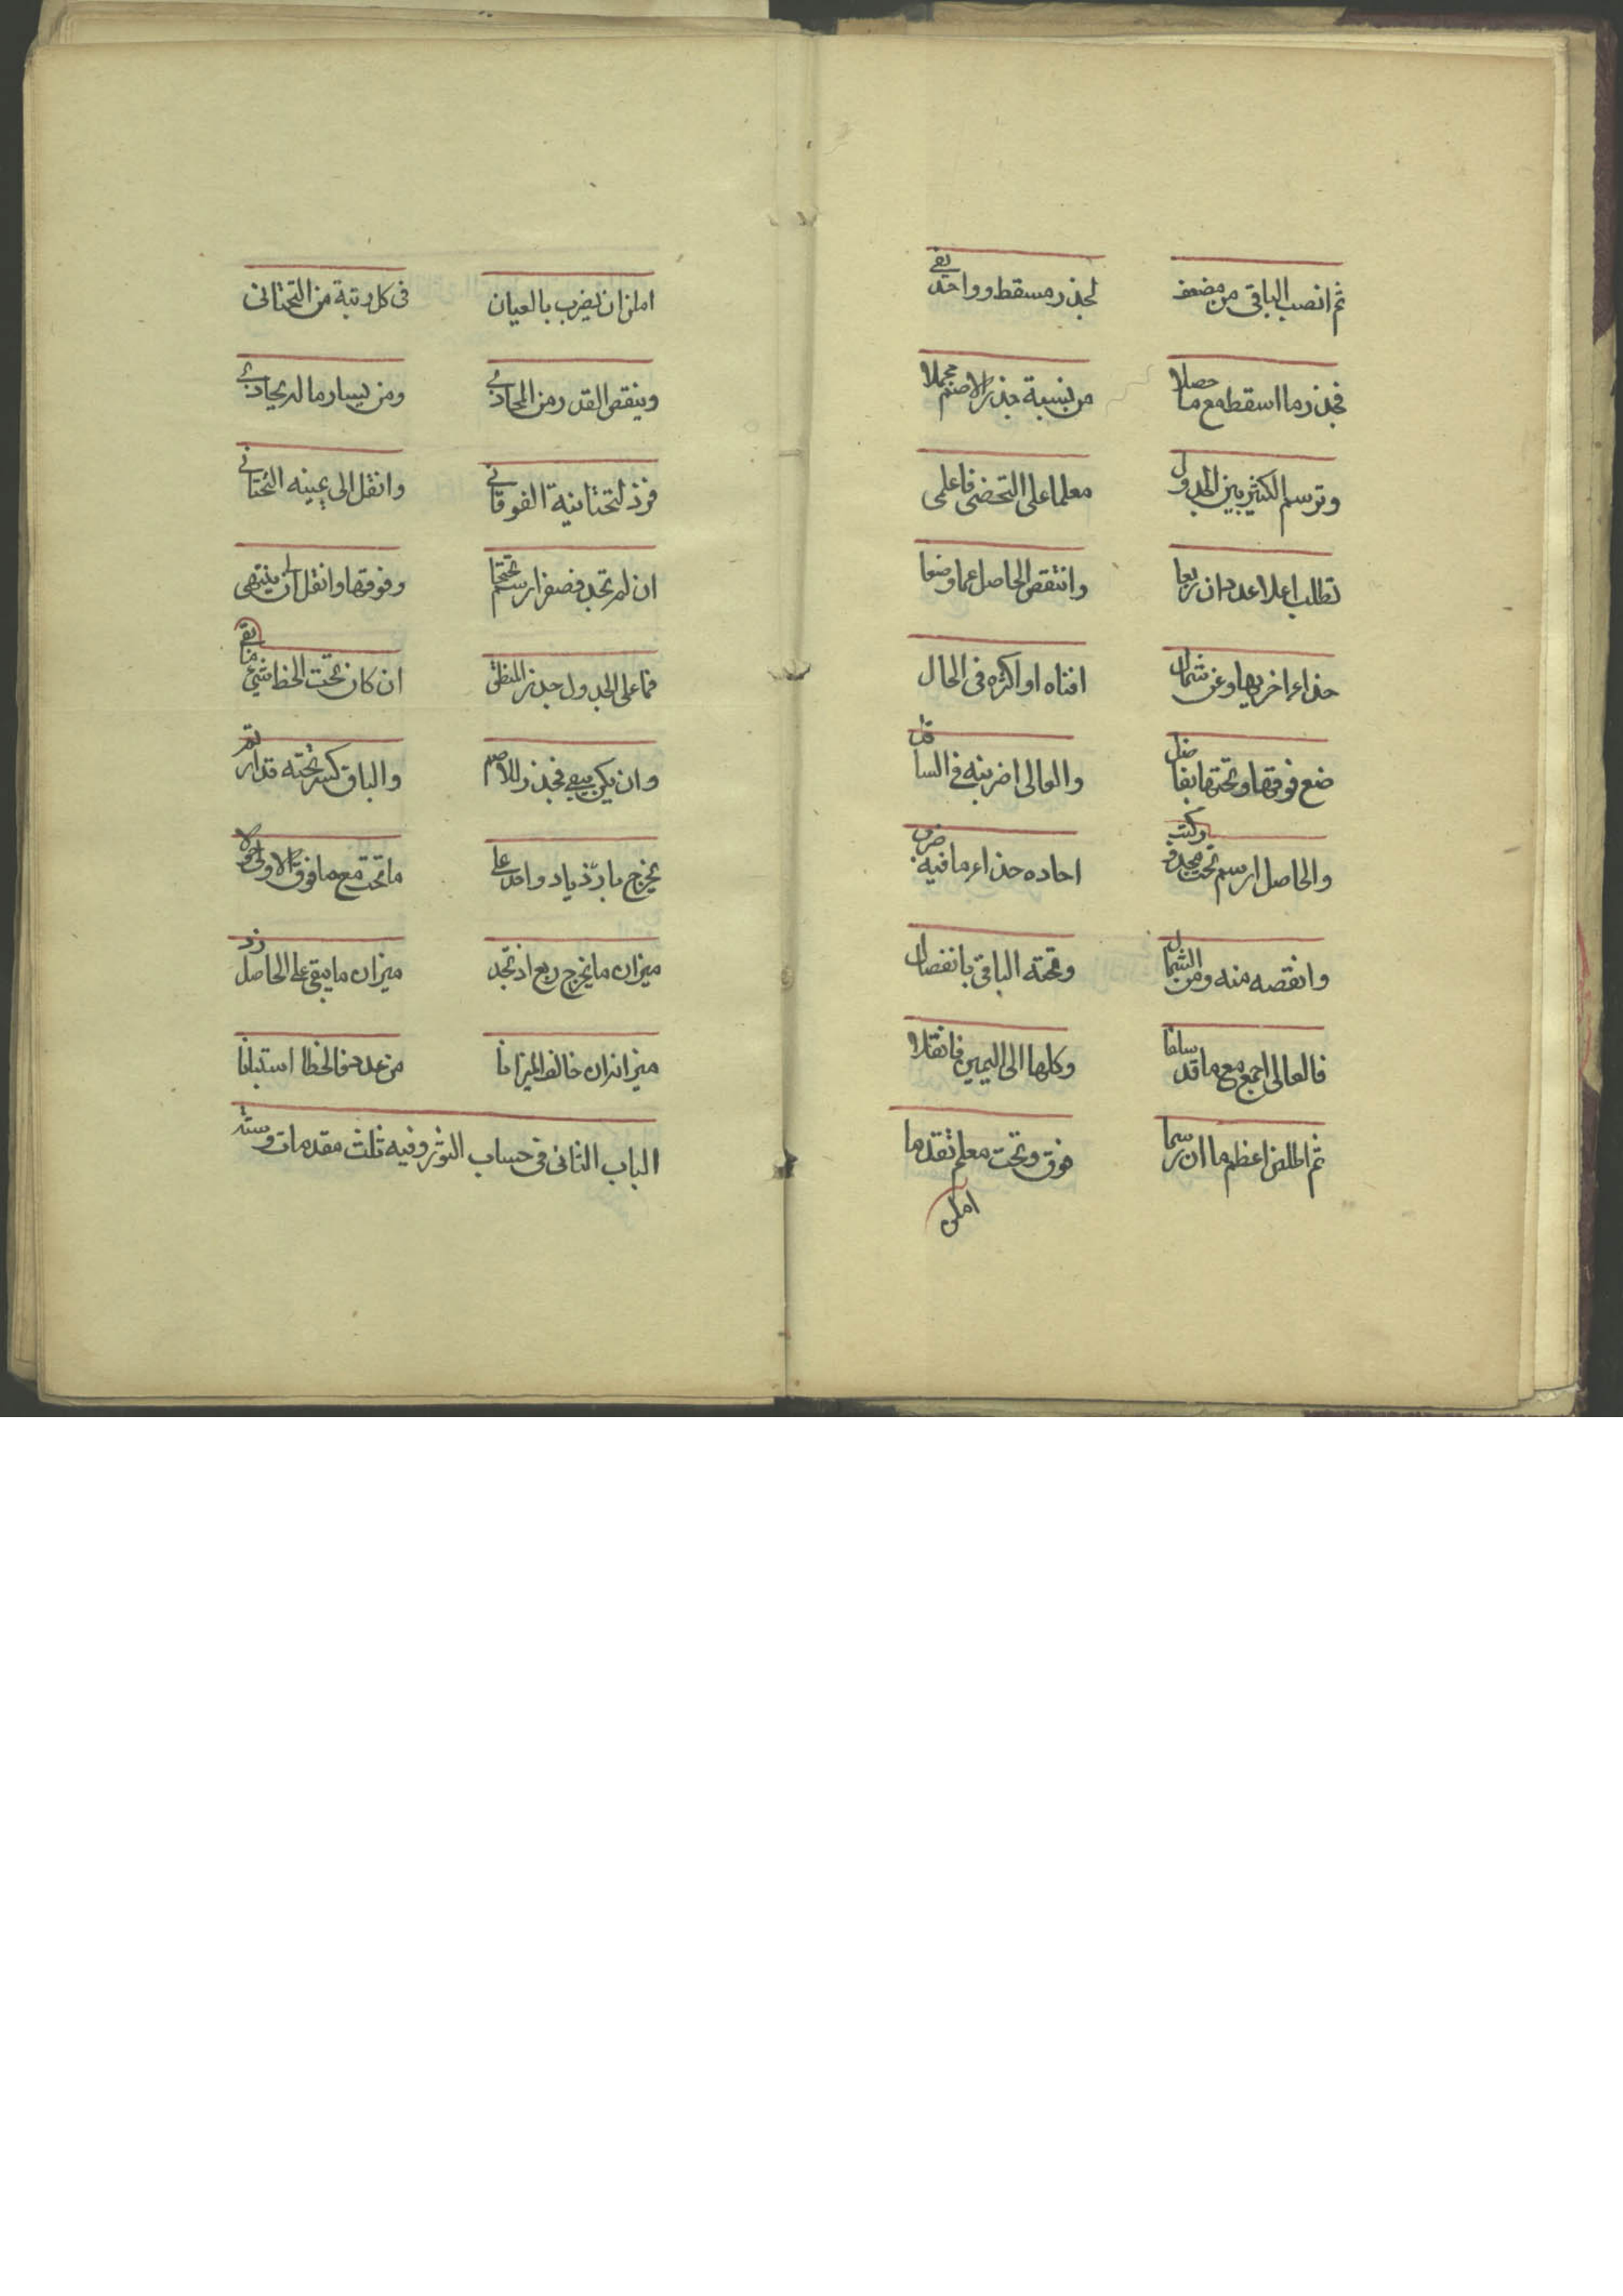 ثم انصب الباقى من مضعف لجذر مسقط وواحد يفى
فجذر ما اسقط مع ما حصلا من نسبة جذر الاصم مجملا
وترسم الكثير بين الجدول معلما على التخضى فاعلمى
تطلب اعلا عدد ان ربعا وانتقص الحاصل عما وضعا
حذاء اخريها وعن شمال افناه او اكثره فى الحال
ضع فوقها وتحتها بفاضل والعالى اضربنه فى السافل
والحاصل ارسم تحت مجذور وكتب احاده حذاء ما فيه ضرب
وانقصه منه ومن الشمال وتحته الباقى بانفصال
فالعالى اجمع مع ما قد سلفا وكلها الى اليمين فانقلا
ثم اطلبن اعظم ما ان رسما فوق وتحت معلم تقدما
امكن
امكن ان يضرب بالعيان فى كل رتبة من التحتانى
وينقص القدر من المحاذى ومن يسار ما له يحاذى
فزد لتحتانية الفوقانى وانقل الى يمينه التحتانى
ان لم تجد فصفرا ارسم تحتها وفوقها وانقل الى ان ينتهى
فما على الجدول جذر المنطق ان كان تحت الخط شئ ما بقى
وان يكن يبقى فجذر للاصم والباقى كسر تحته قدار تم
يخرج بازدياد واحد على ما تحت مع ما فوق الاولى حولا
ميزان ما يخرج ربع اذ تجد ميزان ما يبقى على الحاصل زد
ميزانه ان خالف الميزانا من عدد فالخطا استبانا
الباب الثانى فى حساب الكسور وفيه ثلث مقدمات وستة